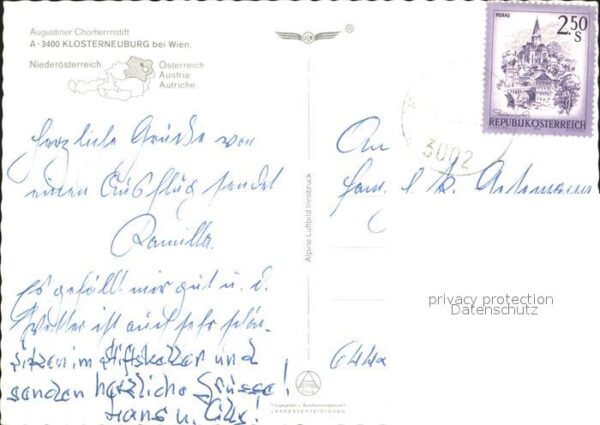 Augustiner Chorherrnstift
A-3400 KLOSTERNEUBURG bei Wien.
Niederösterreich
Österreich
Austria
Autriche
herzliche Grüße von
einen Ausflug sendet
Ramilla.
Es gefällt mir gut u. d.
Wetter ist auch sehr schön.
Sitzen im Stiftskeller und
senden herzliche Grüsse!
Hans u.
Alpine Luftbild Innsbruck
Freigegeben v. Bundesministerium f.
LANDESVERTEIDIGUNG
MURAU
2.50
S
REPUBLIK ÖSTERREICH
3002
An
Fam.
privacy protection
Datenschutz